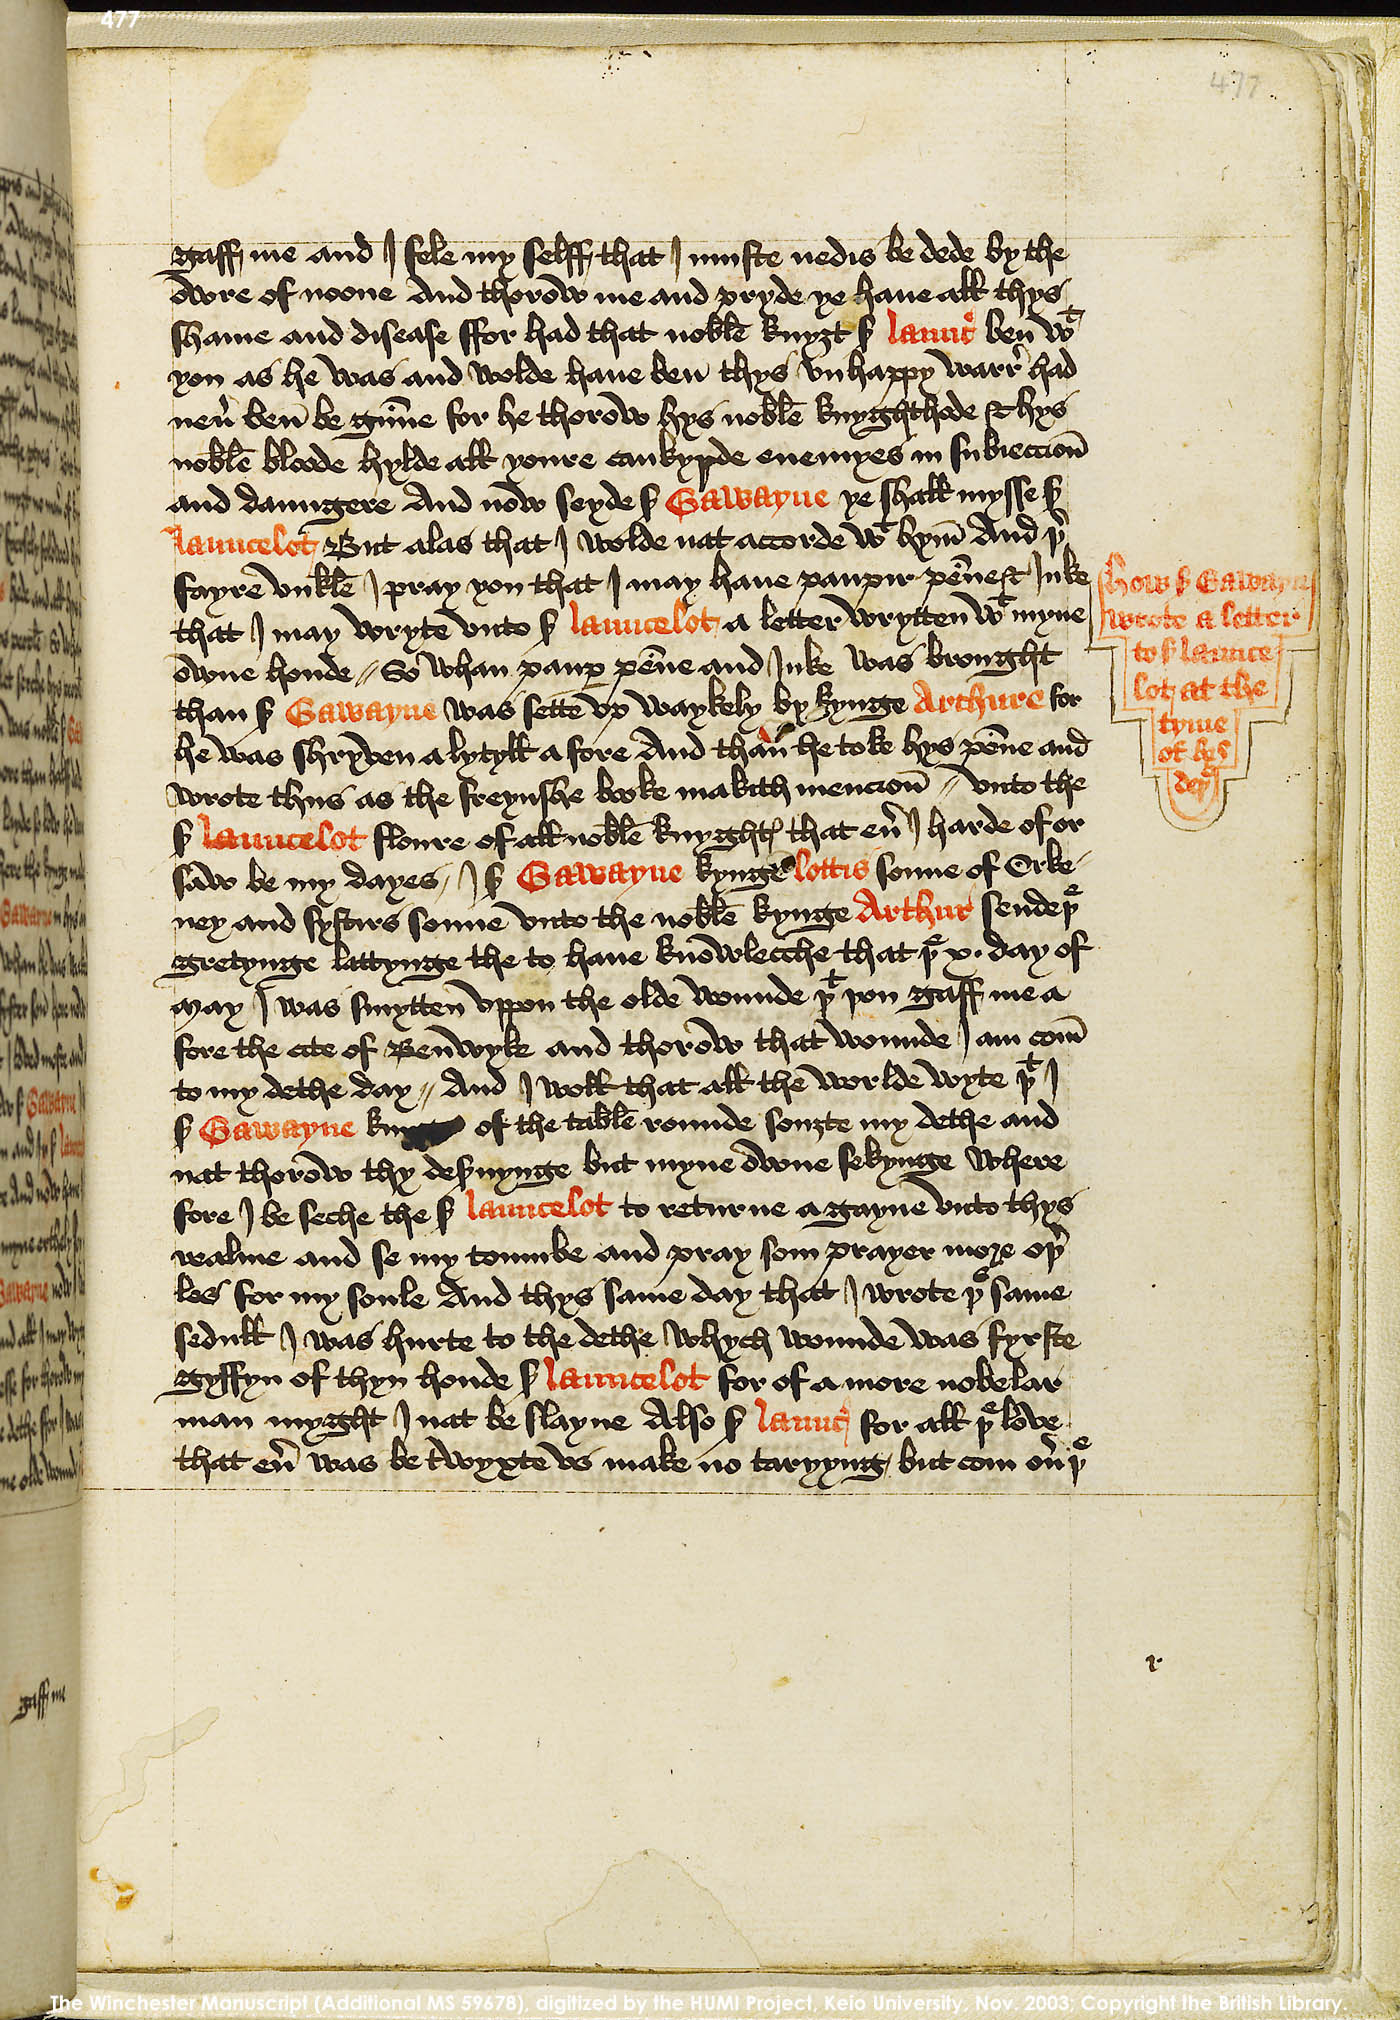 477
477
gaff me and I fele my selff that I muste nedis be dede by the
owre of noone And thorow me and pryde ye haue all thys
shame and disease ffor had that noble knyȝt sʳ launcͭ ben wͭ
you as he was and wolde haue ben thys vnhappy warre had
neuͬ ben be gunne for he thorow hys noble knyghthode & hys
noble bloode hylde all youre cankyrde enemyes in subieccion̄
and daungere And now seyde sʳ Gawayne ye shall mysse sʳ
launcelot But alas that I wolde nat accorde wͭ hym̄ And þͬ
fayre vnkle I pray you that I may haue paupir penne & Inke
that I may wryte vnto sʳ launcelot a letter wrytten wͭ myne
owne honde // So whan paupͬ penne and Inke was brought
than sʳ Gawayne was sette vp waykely by kynge Arthure for
he was shryven a lytyll a fore And than he toke hys penne and
wrote thus as the freynshe booke makith mencion̄ // vnto the
sʳ launcelot floure of all noble knyghtꝭ that euͬ I harde of or
saw be my dayes / I sʳ Gawayne kynge lottis sonne of Orke
ney and systirs sonne vnto the noble kynge Arthur sende þͤ
gretynge lattynge the to haue knowlecche that þͤ x. day of
may I was smytten vppon the olde wounde þͭ you gaff me a
fore the cite of Benwyke and thorow that wounde I am com̄
to my dethe day // And I woll that all the worlde wyte þͭ I
sʳ Gawayne of the table rounde souȝte my dethe and
nat thorow thy deseruynge but myne owne sekynge Where
fore I be seche the sʳ launcelot to returne a gayne vnto thys
realme and se my toumbe and pray som prayer more oþͬ
les for my soule And thys same day that I wrote þͤ same
sedull I was hurte to the dethe Whych wounde was fyrste
gyffyn of thyn honde sʳ launcelot for of a more nobelar
man myght I nat be slayne Also sʳ launcͭ for all þͤ love
that euͬ was be twyxte vs make no taryyng but com ouͬ þͤ
How sʳ Gawayne
wrote a letter
to sʳ launce
lot at the
tyme
of hys
deþͤ
gaff me
The Winchester Manuscript (Additional MS 59678), digitized by the HUMI Project, Keio University, Nov. 2003; Copyright the British Library.